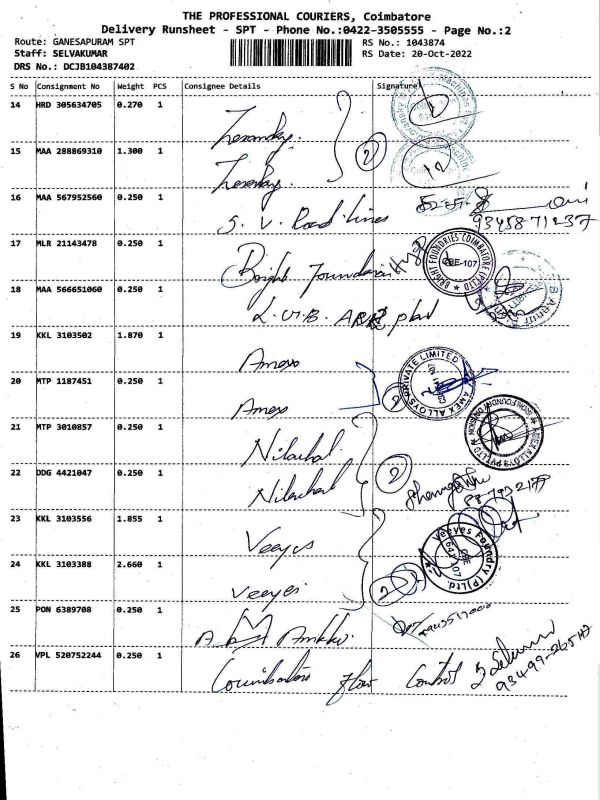 THE PROFESSIONAL COURIERS, Coimbatore
Delivery Runsheet - SPT - Phone No.:0422-3505555 - Page No.:2
Route: GANESAPURAM SPT
RS No.: 1043874
Staff: SELVAKUMAR
RS Date: 20-Oct-2022
DRS No.: DCJB104387402
S No Consignment No Weight PCS Consignee Details Signature
14 HRD 305634705 0.270 1
15 MAA 288869310 1.300 1
2
12
16 MAA 567952560 0.250 1
S. V. Road Lines
93458 71237
17 MLR 21143478 0.250 1 Bright Foundaries
BRIGHT FOUNDRIES COIMBATORE (P) LTD
CBE-107
18 MAA 566651060 0.250 1
19 KKL 3103502 1.870 1
Amex
20 MTP 1187451 0.250 1
Amex
2
AMEX ALLOYS PRIVATE LIMITED
21 MTP 3010857 0.250 1
Nilachal
22 DDG 4421047 0.250 1
Nilachal
2
23 KKL 3103556 1.855 1
Veeyes
24 KKL 3103388 2.660 1
Veeyes
2
Veeyes Foundry (P) Ltd.
25 PON 6389708 0.250 1
26 VPL 520752244 0.250 1
Coimbatore Flow Control